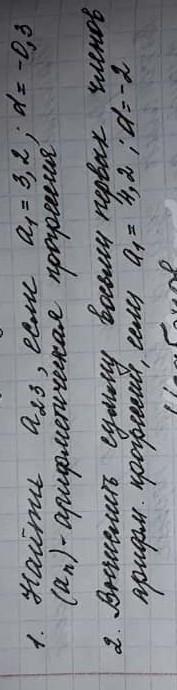 1. Найти a₂₃, если a₁ = 3,2 ; d = -0,3
(aₙ) - арифметическая прогрессия
2. Вычислить сумму восьми первых членов
арифм. прогрессии, если a₁ = 4,2 ; d = -2